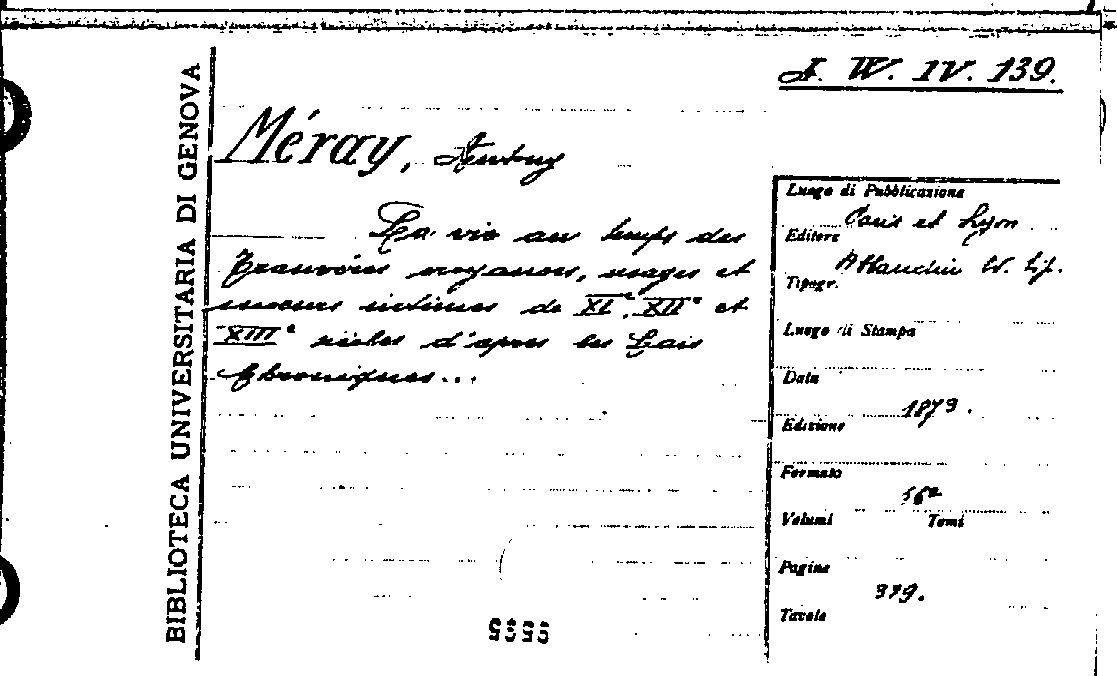 I. W. IV. 139.
BIBLIOTECA UNIVERSITARIA DI GENOVA
Méray, Antony
La vie au temps des
Trouvères croyances, usages et
moeurs intimes de XIe, XIIe et
XIIIe siècles d'après les Lais
Chroniques...
Luogo di Pubblicazione
Paris et Lyon
Editore
Tipogr.
Luogo di Stampa
Data
1873.
Edizione
Formato
16o
Volumi Tomi
Pagine
379.
Tavole